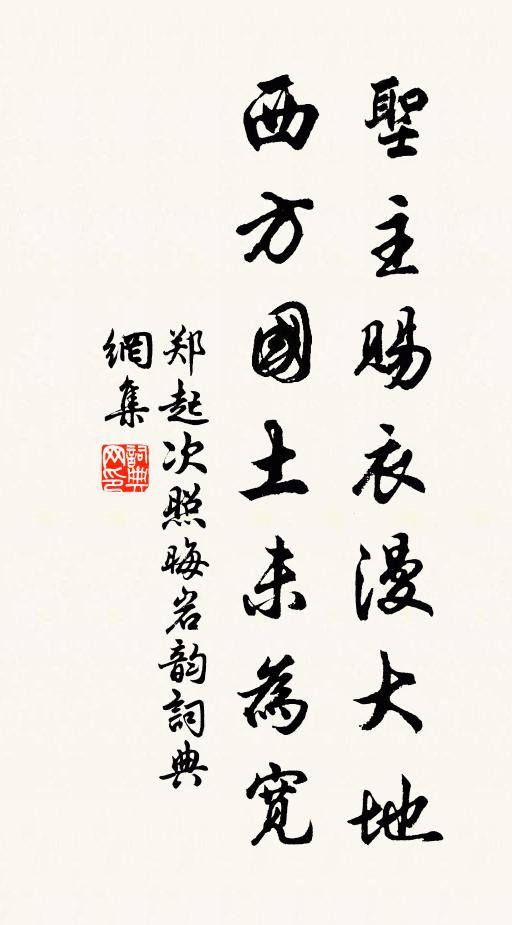 聖主賜衣漫大地
西方國土未為寬
郑起次照晦岩韵詞典
網集
詞典網印